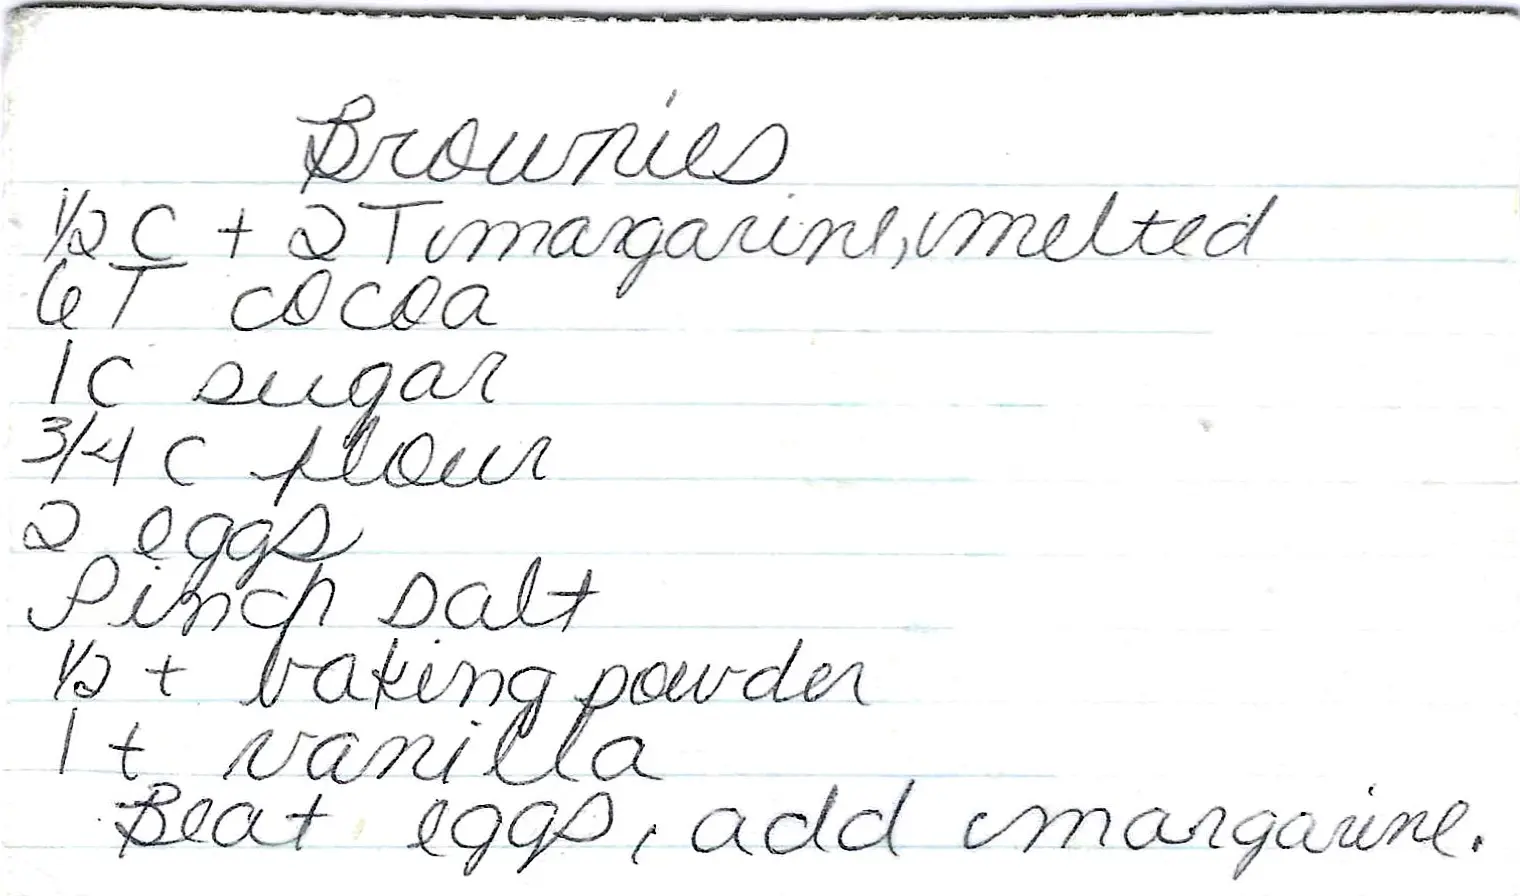 Brownies
1/2 C + 2 T margarine, melted
6 T cocoa
1 C sugar
3/4 C flour
2 eggs
Pinch salt
1/2 t baking powder
1 t vanilla
Beat eggs, add margarine.